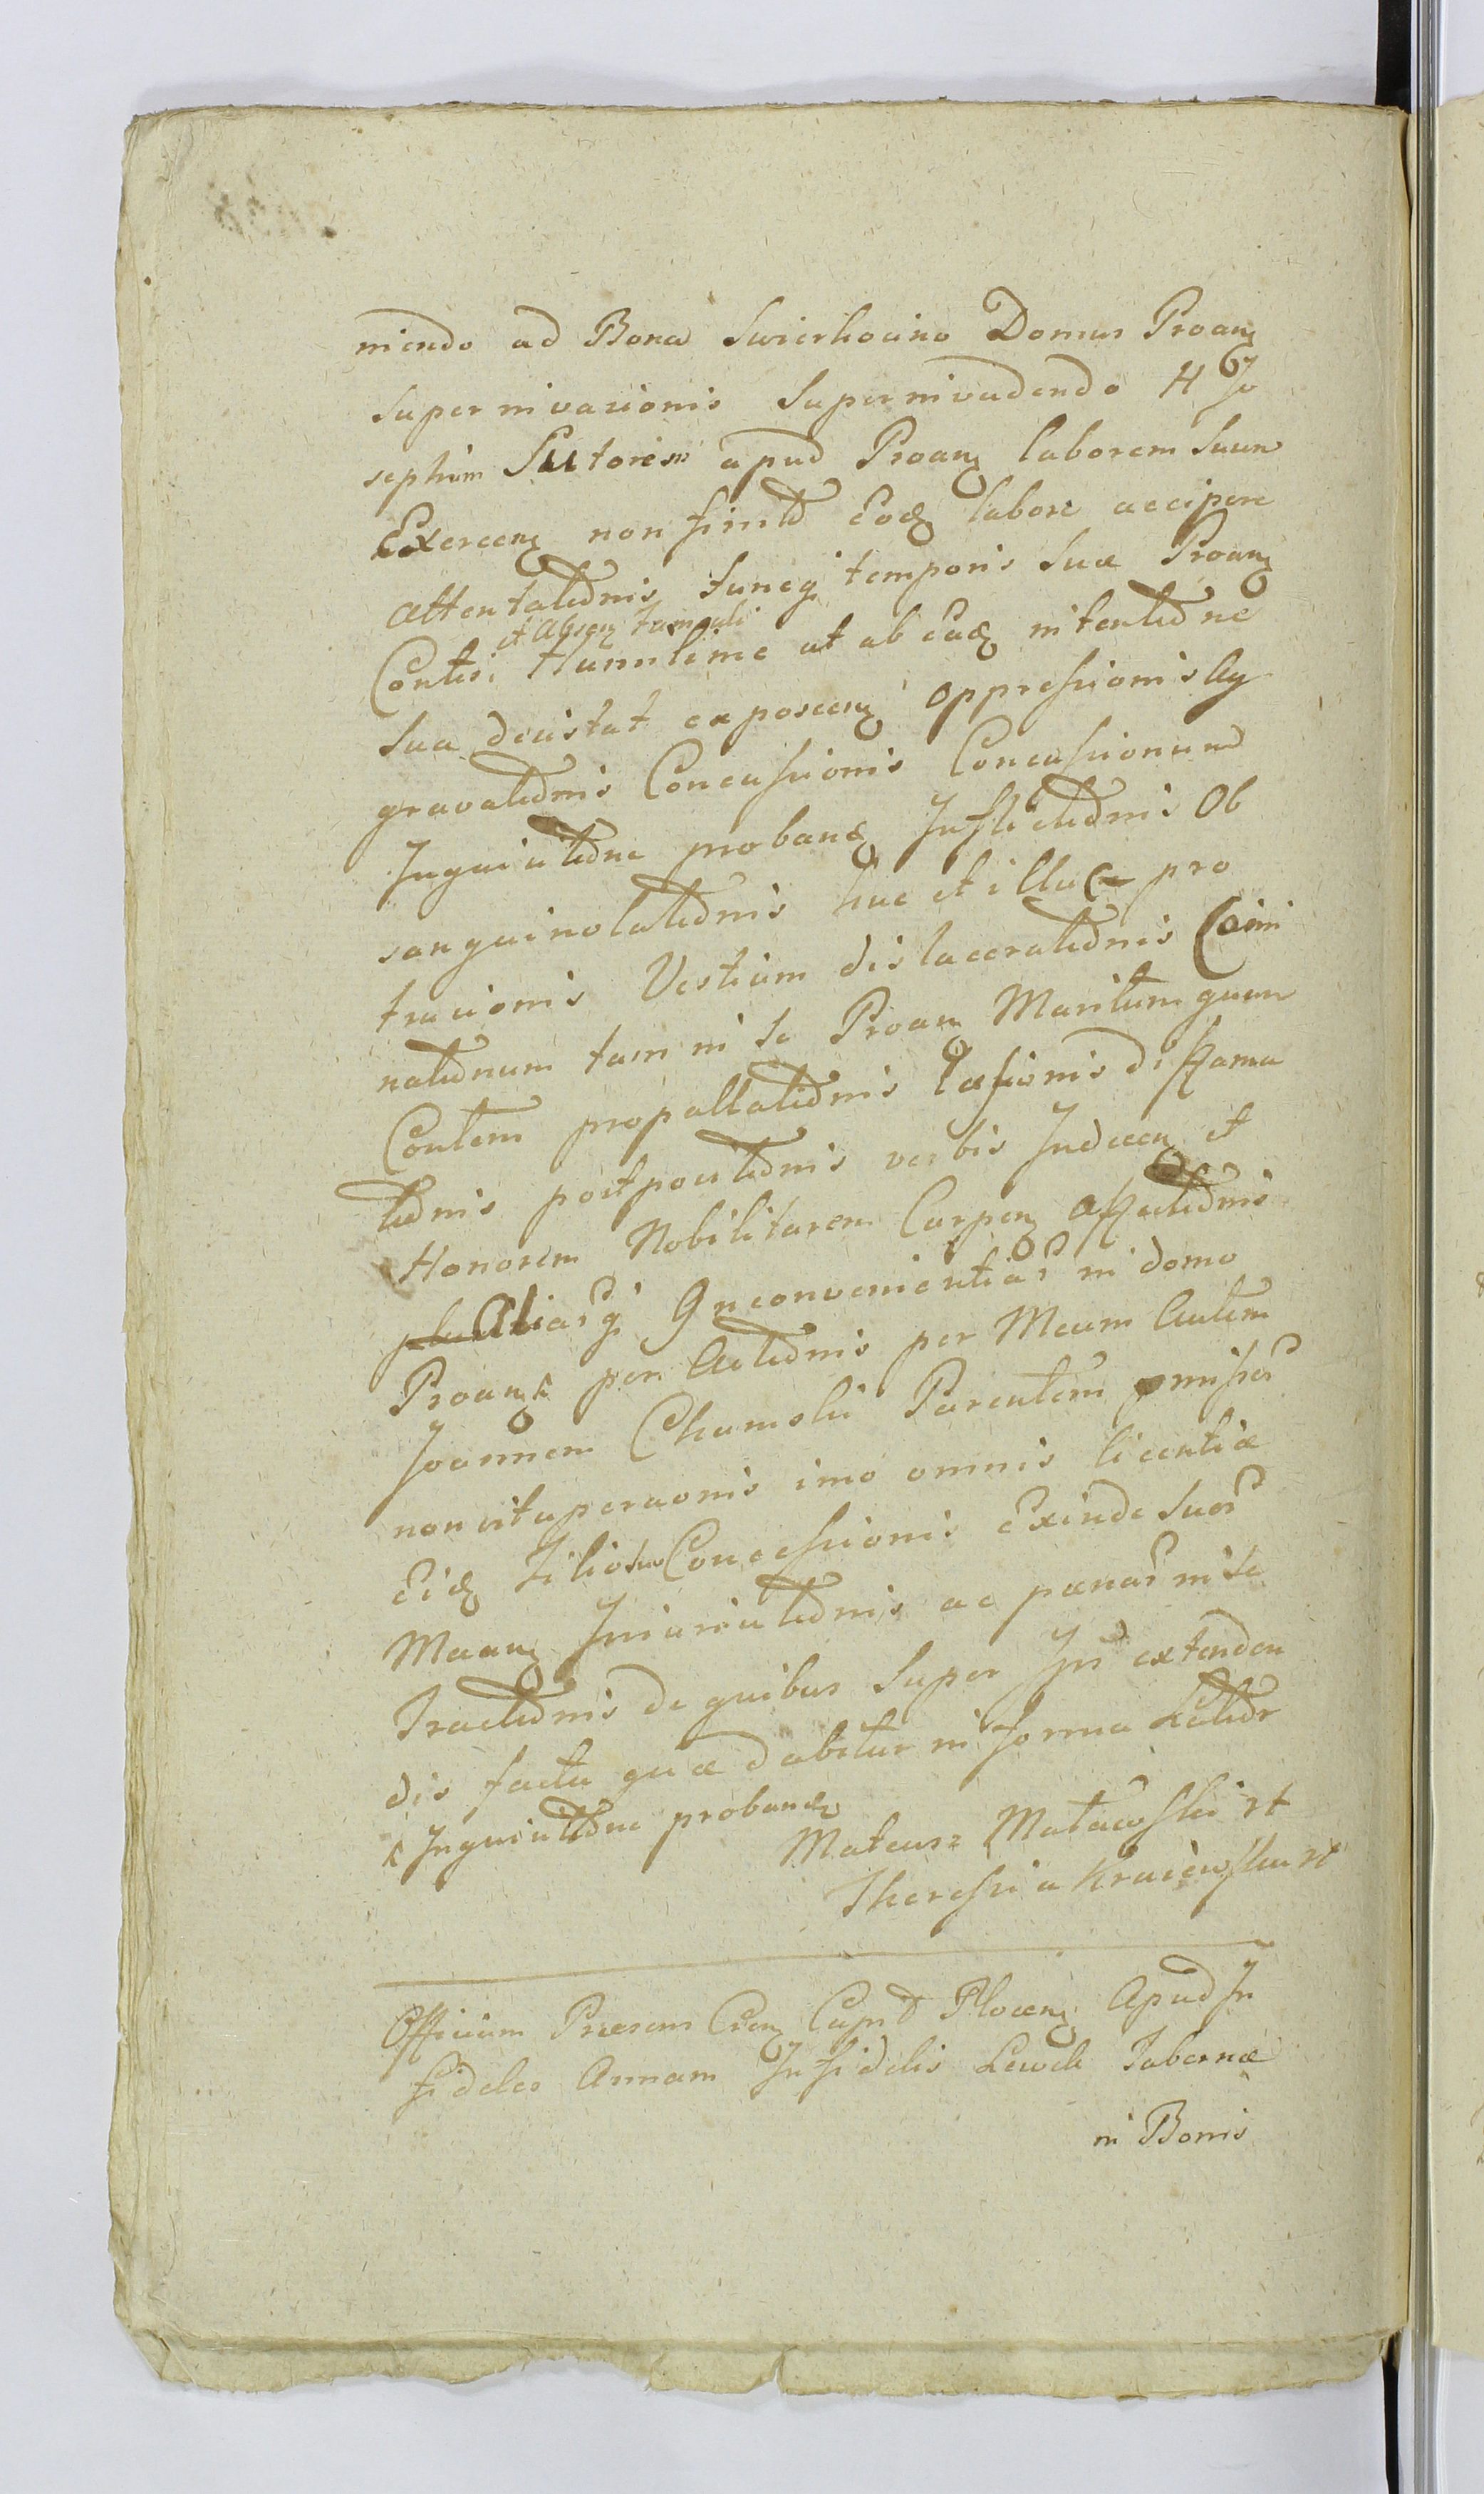 niendo ad Bona Swierkocino Domus Proan
supernivasionis supernivadendo H Jo
sephum Sutorem apud Proan laborem suum
Exercen non finito Eod labore accipere
attentationis tuncq temporis suæ Proan
et Absen famuli
Contis Humilime ut ab Ead intentione
sua desistat exposcen oppressionis Ag
gravationis Concussionis Concussionum
Inquisitione proband Inflictionis Ob
sanguinolationis huc et illuc pro
tracionis Vestium dislacerationis Crimi
nationum tam in se Proan Maritum quam
Contem propallationis læsionis diffama
tionis postpositionis verbis Indecen et
Honorem Nobilitarem Carpen affectionis
Aliasq Inconvenientias in domo
Proan per Actionis per Meum Autem
Joannem Chamski Parentem præmissor
non vituperaonis imo omnis licentiæ
Eid Filio suo Concessionis Exinde suor
Maan Iniuriationis ac pænar in se
Tractionis de quibus super Ipsi extenden
dis facta quæ dabitur in forma Latior
Inquisitione proband
Mateusz Matawski rt
Theressia Kraiewska rt
Officium Præsens Cren Capit Plocen Apud In
fideles Annam Infidelis Lewek Tabernæ
in Bonis